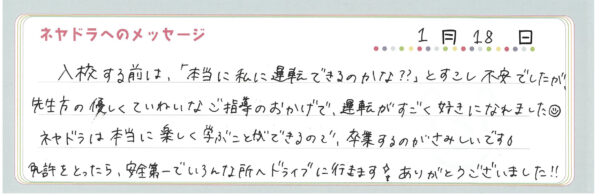 ネヤドラへのメッセージ
1月18日
入校する前は、「本当に私に運転できるのかな??」とすこし不安でしたが、
先生方の優しくていねいなご指導のおかげで、運転がすごく好きになれました☺
ネヤドラは本当に楽しく学ぶことができるので、卒業するのがさみしいです。
免許をとったら、安全第一でいろんな所へドライブに行きます! ありがとうございました!!